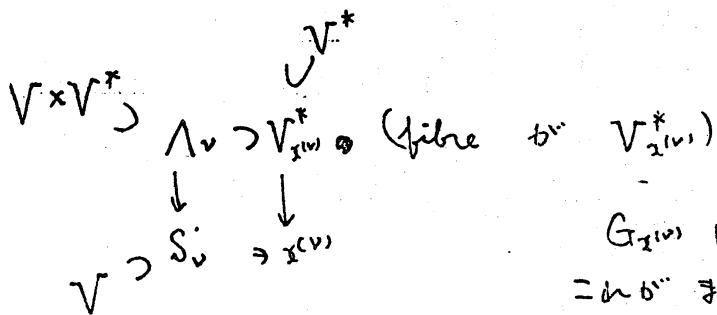 V^*
∪
V×V^* ⊃ Λ_ν ⊃ V^*_{x^{(ν)}} (fibre が V^*_{x^{(ν)}})
↓ ↓
V ⊃ S_ν ∋ x^{(ν)}
G_{x^{(ν)}}
これが